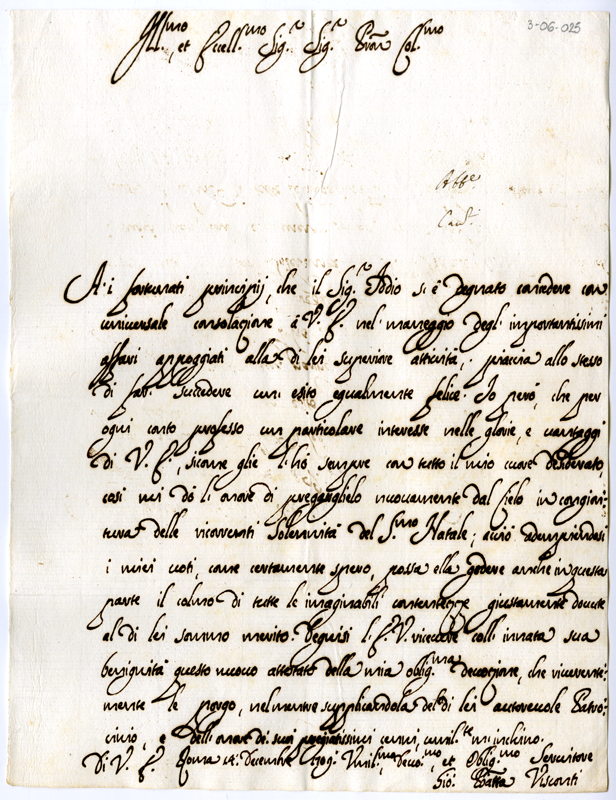 3-06-025
Ill.mo, et Eccell.mo Sig.r Sig.r Pron Col.mo
Abb.e
A' i fortunati principij, che il Sig.r Iddio si è degnato concedere con
universale consolazione à V. E. nel maneggio degl' importantissimi
affari appoggiati alla di lei superiore attività, piaccia allo stesso
di far succedere un esito egualmente felice. Io però, che per
ogni conto professo un particolare interesse nelle glorie, e vantaggi
di V. E., sicome glie l' hò sempre con tutto il mio cuore desiderato,
così mi dò l' onore di pregarglielo nuovamente dal Cielo in congion:
tura delle ricorrenti Solennità del S.mo Natale; acciò adempiendosi
i miei voti, come certamente spero, possa ella godere anche in questa
parte il colmo di tutte le imaginabili contentezze giustamente dovute
al di lei sommo merito. Degnisi l' E. V. ricevere coll' innata sua
benignità questo nuovo attestato della mia oblig.ma devozione, che riverente:
mente le porgo, nel mentre supplicandola del di lei autorevole Patro:
cinio, e dell' onore di suoi pregiatissimi cenni, umil.te m' inchino.
Di V. E. Roma 14 decembre 1709. Umil.mo Devo.mo, et Oblig.mo Servitore
Gio. Batta Visconti